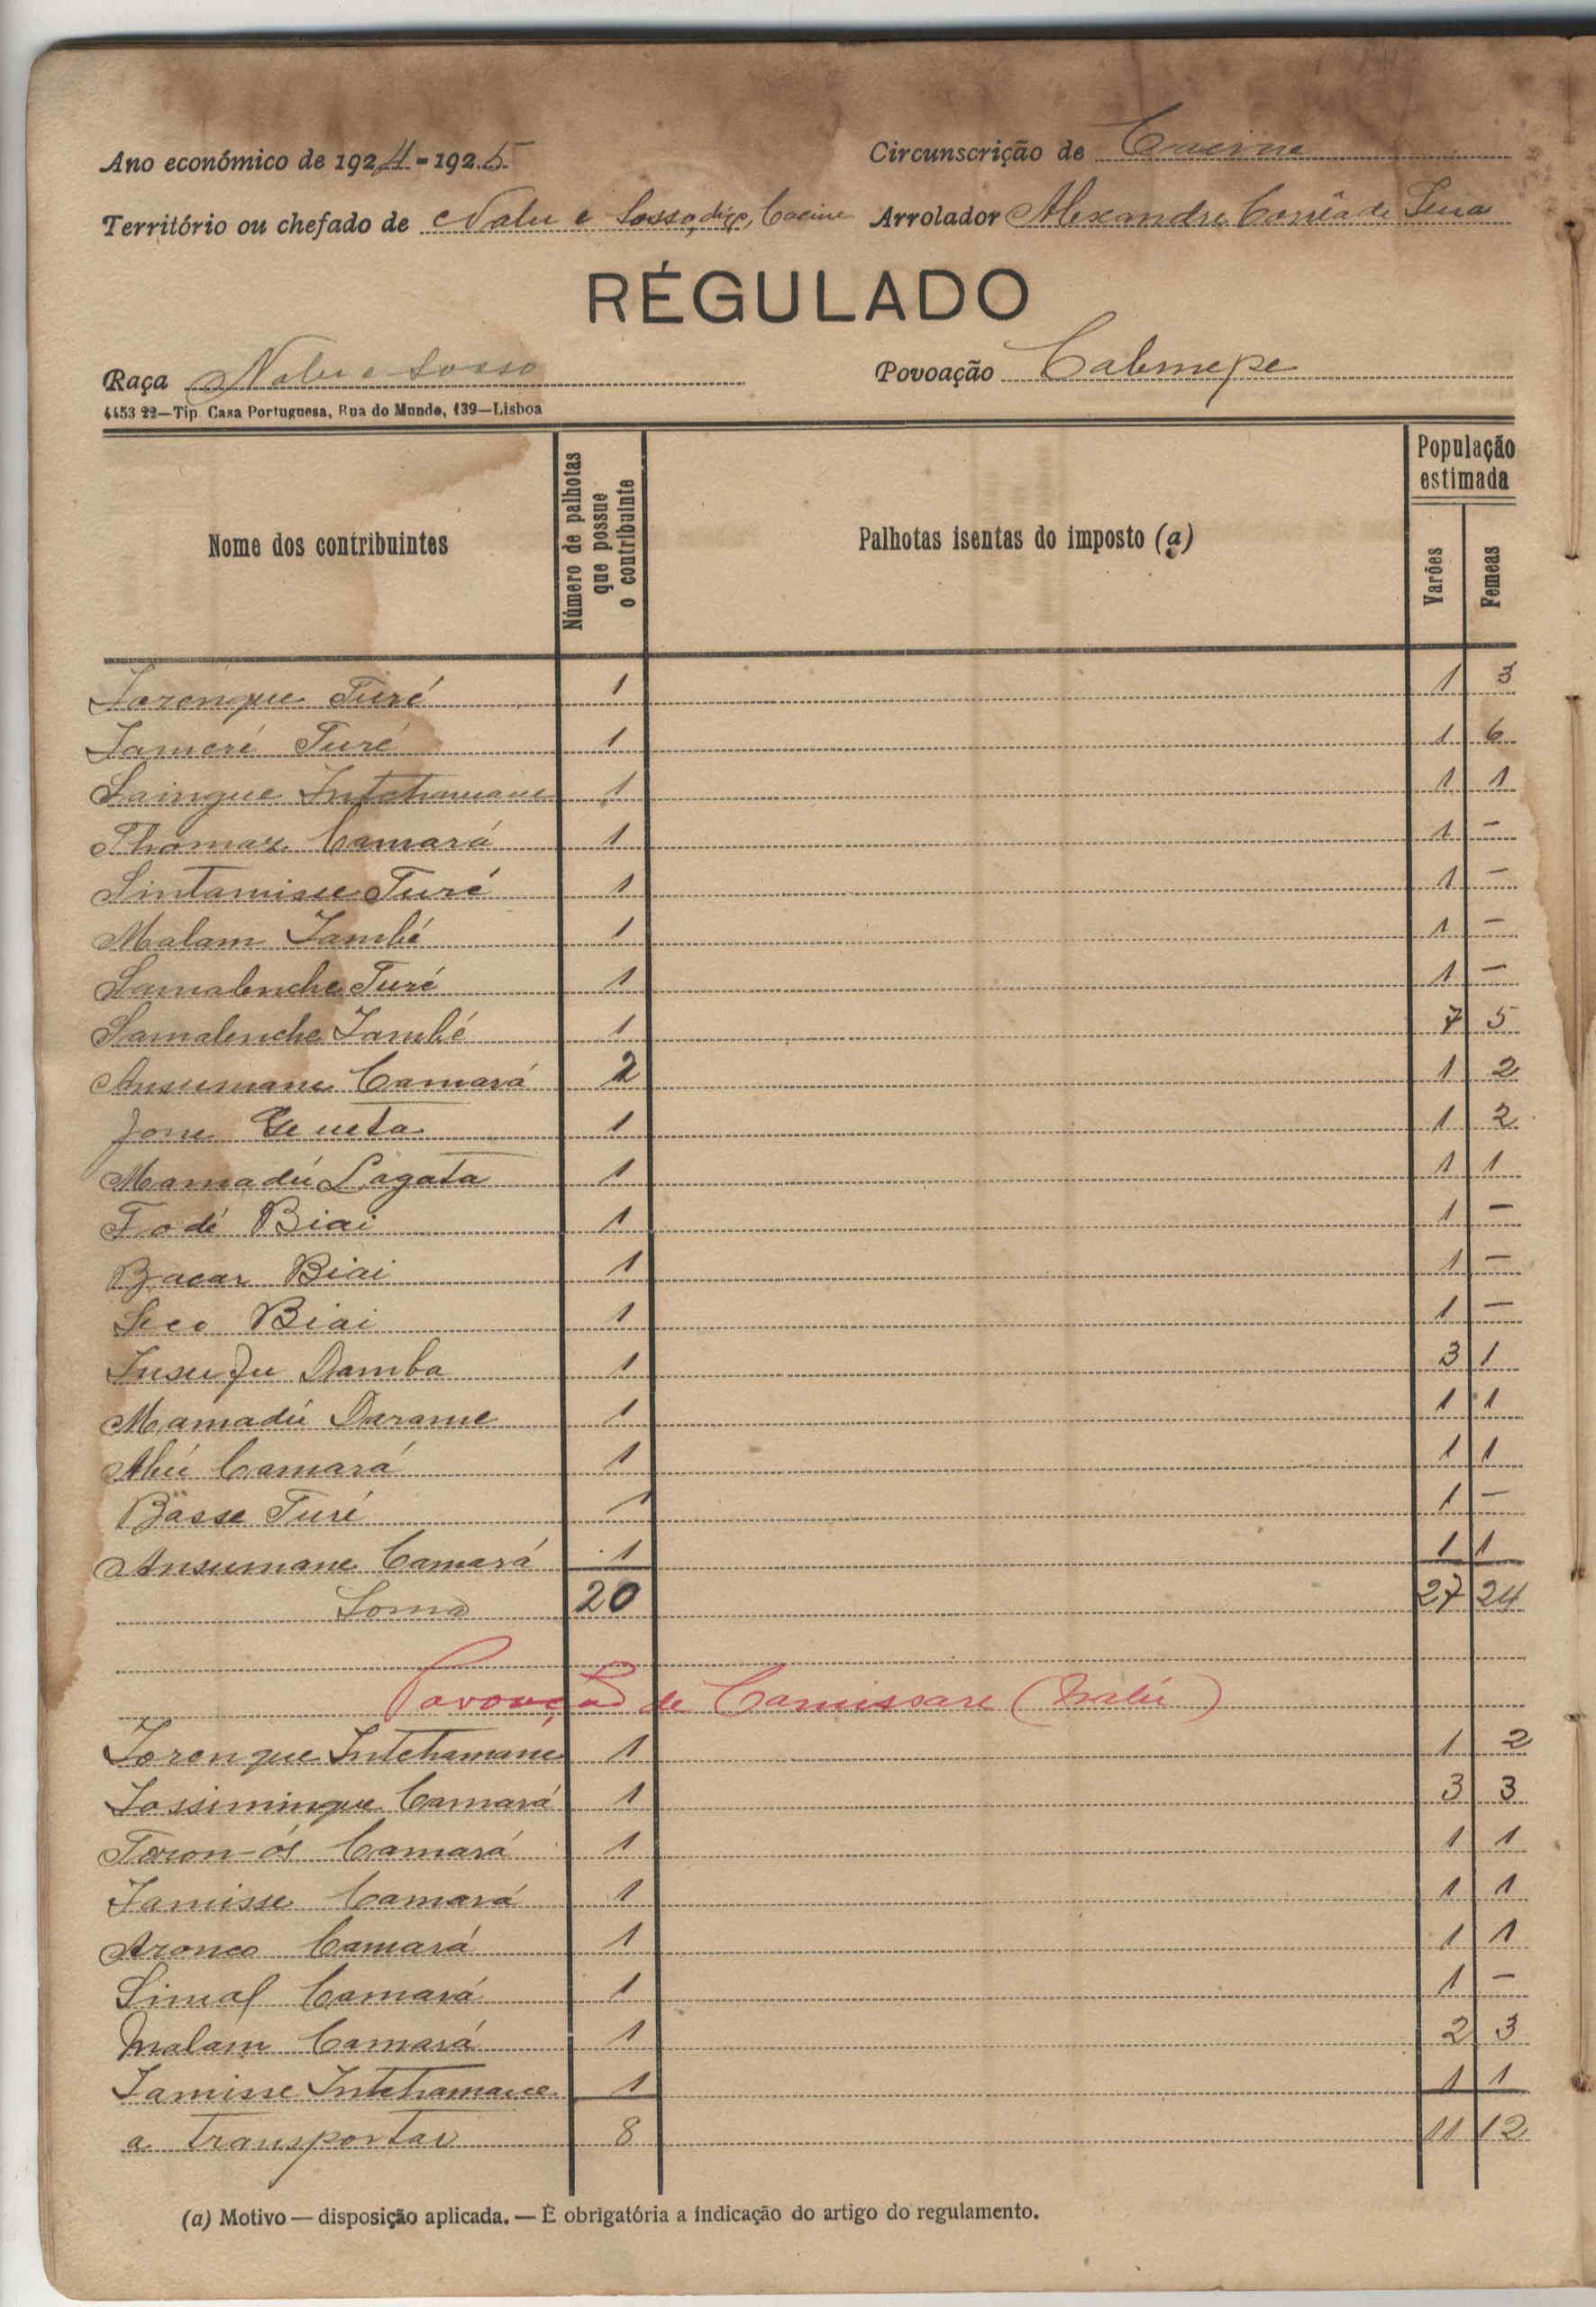 Ano económico de 1924-1925 Circunscrição de Cacine
Território ou chefado de Nalu e Sosso, digo, Cacine Arrolador Alexandre Corrêa de Sena
RÉGULADO
Raça Nalu e Sosso Povoação Cabmepe
4453 22—Tip. Casa Portuguesa, Rua do Mundo, 139—Lisboa
Nome dos contribuintes Número de palhotas que possue o contribuinte Palhotas isentas do imposto (a) População estimada Varões Femeas
Torenque Turé 1 1 3
Tameré Turé 1 1 6
Saingue Intchamane 1 1 1
Thomaz Camará 1 1 —
Sintamisse Turé 1 1 —
Malam Também 1 1 —
Samalenche Turé 1 1 —
Samalenche També 1 7 5
Ansumane Camará 2 1 2
Jone 1 1 2
Mamadú Lagata 1 1 1
Fodé Biai 1 1 —
Bacar Biai 1 1 —
Seco Biai 1 1 —
Insufu Damba 1 3 1
Mamadú Darame 1 1 1
Abú Camará 1 1 1
Basse Turé 1 1 —
Ansumane Camará 1 1 1
Soma 20 27 24
Povoação de Camissare (Nalú)
Torenque Intchamane 1 1 2
Tossiminque Camará 1 3 3
Toron-ós Camará 1 1 1
Tamisse Camará 1 1 1
Aronco Camará 1 1 1
Simal Camará 1 1 —
Malam Camará 1 2 3
Tamisse Intchamane 1 1 1
a transportar 8 11 12
(a) Motivo — disposição aplicada. — È obrigatória a indicação do artigo do regulamento.